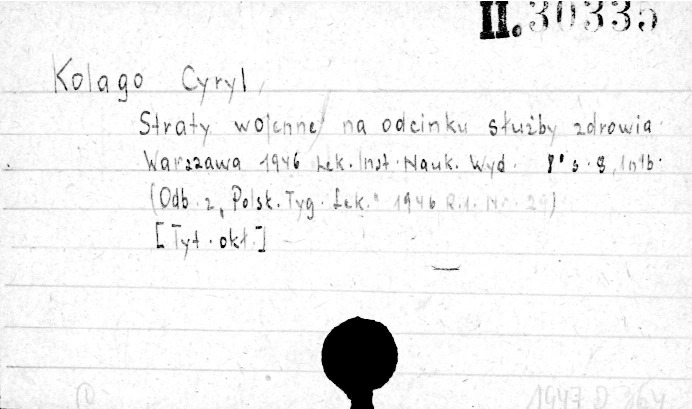 II. 30335
Kolago Cyryl
Straty wojenne na odcinku służby zdrowia.
Warszawa 1946 Lek. Inst. Nauk. Wyd. 8° s. 8, 1 nlb.
(Odb. z „Polsk. Tyg. Lek." 1946 R. 1. Nr. 29)
[Tyt. okł.]
1947 D 364